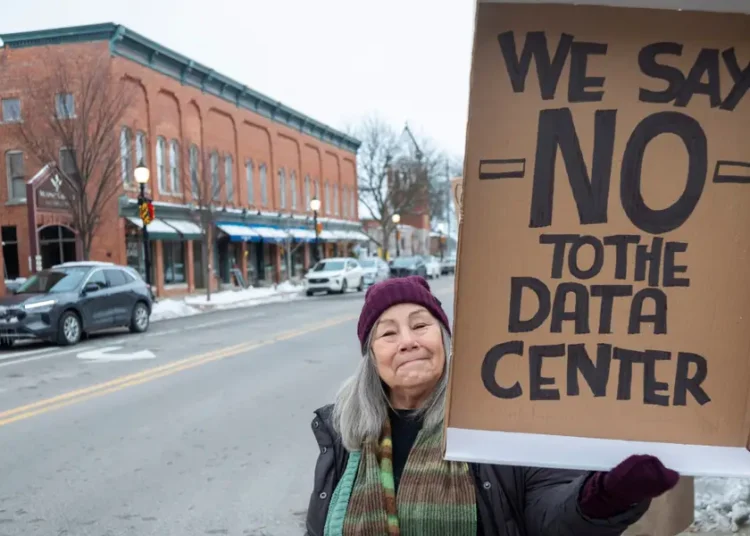 WE SAY
NO
TO THE
DATA
CENTER